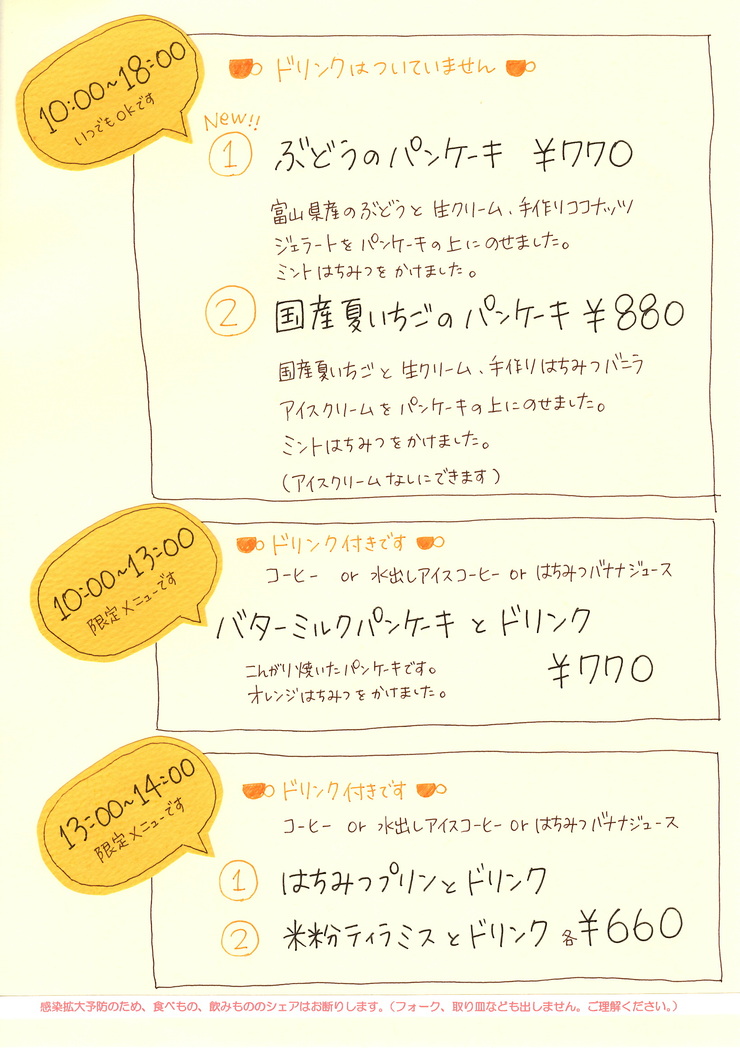 10:00~18:00
いつでもOKです
ドリンクはついていません
New!!
① ぶどうのパンケーキ ¥770
富山県産のぶどうと生クリーム、手作りココナッツ
ジェラートをパンケーキの上にのせました。
ミントはちみつをかけました。
② 国産夏いちごのパンケーキ ¥880
国産夏いちごと生クリーム、手作りはちみつバニラ
アイスクリームをパンケーキの上にのせました。
ミントはちみつをかけました。
(アイスクリームなしにできます)
10:00~13:00
限定メニューです
ドリンク付きです
コーヒー or 水出しアイスコーヒー or はちみつバナナジュース
バターミルクパンケーキとドリンク
こんがり焼いたパンケーキです。
オレンジはちみつをかけました。
¥770
13:00~14:00
限定メニューです
ドリンク付きです
コーヒー or 水出しアイスコーヒー or はちみつバナナジュース
① はちみつプリンとドリンク
② 米粉ティラミスとドリンク 各¥660
感染拡大予防のため、食べもの、飲みもののシェアはお断りします。(フォーク、取り皿なども出しません。ご理解ください。)